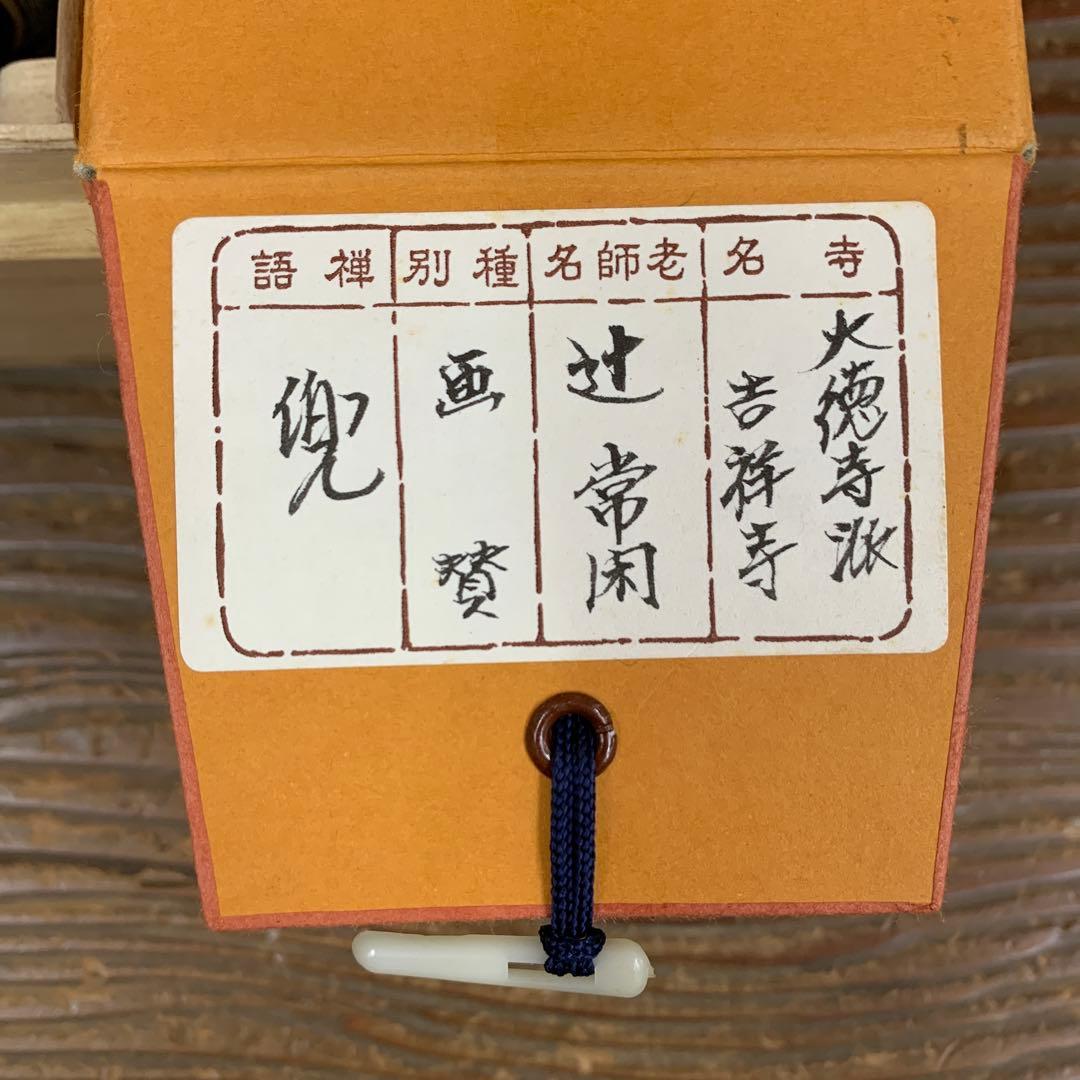 寺名
大徳寺派
吉祥寺
老師名
辻常閑
種別
画賛
禅語
兜